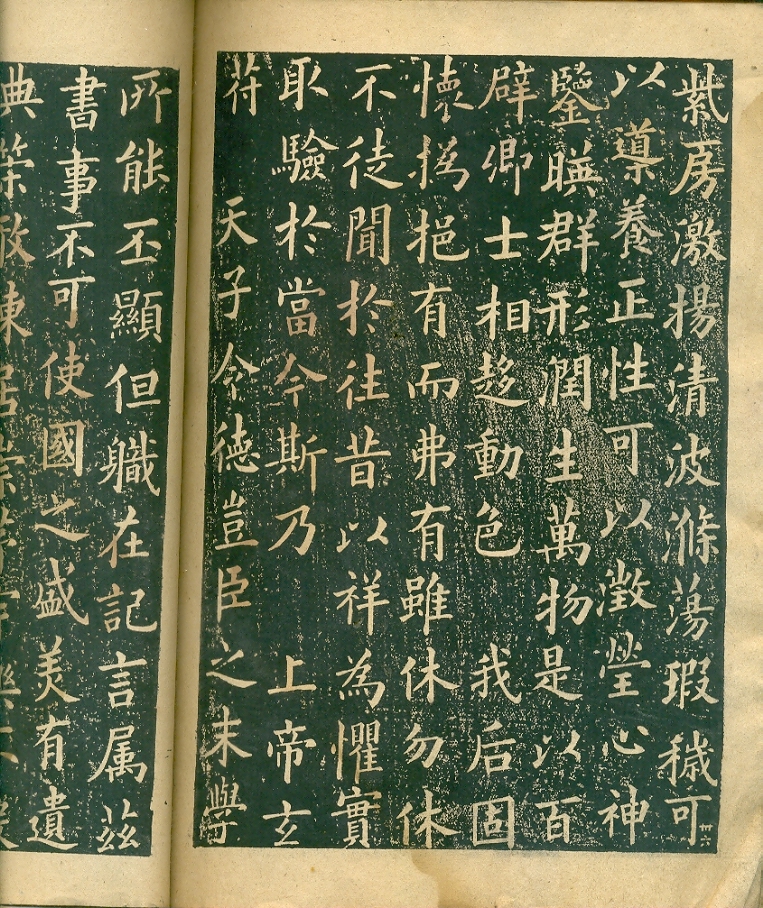 紫房激揚清波滌蕩瑕穢可
以導養正性可以澂瑩心神
鑒暎群形潤生萬物是以百
辟卿士相趍動色 我后固
懷撝挹有而弗有雖休勿休
不徒聞於往昔以祥為懼實
取驗於當今斯乃 上帝玄
符 天子令德豈臣之末學
所能丕顯但職在記言属茲
書事不可使國之盛美有遺
典策敢陳